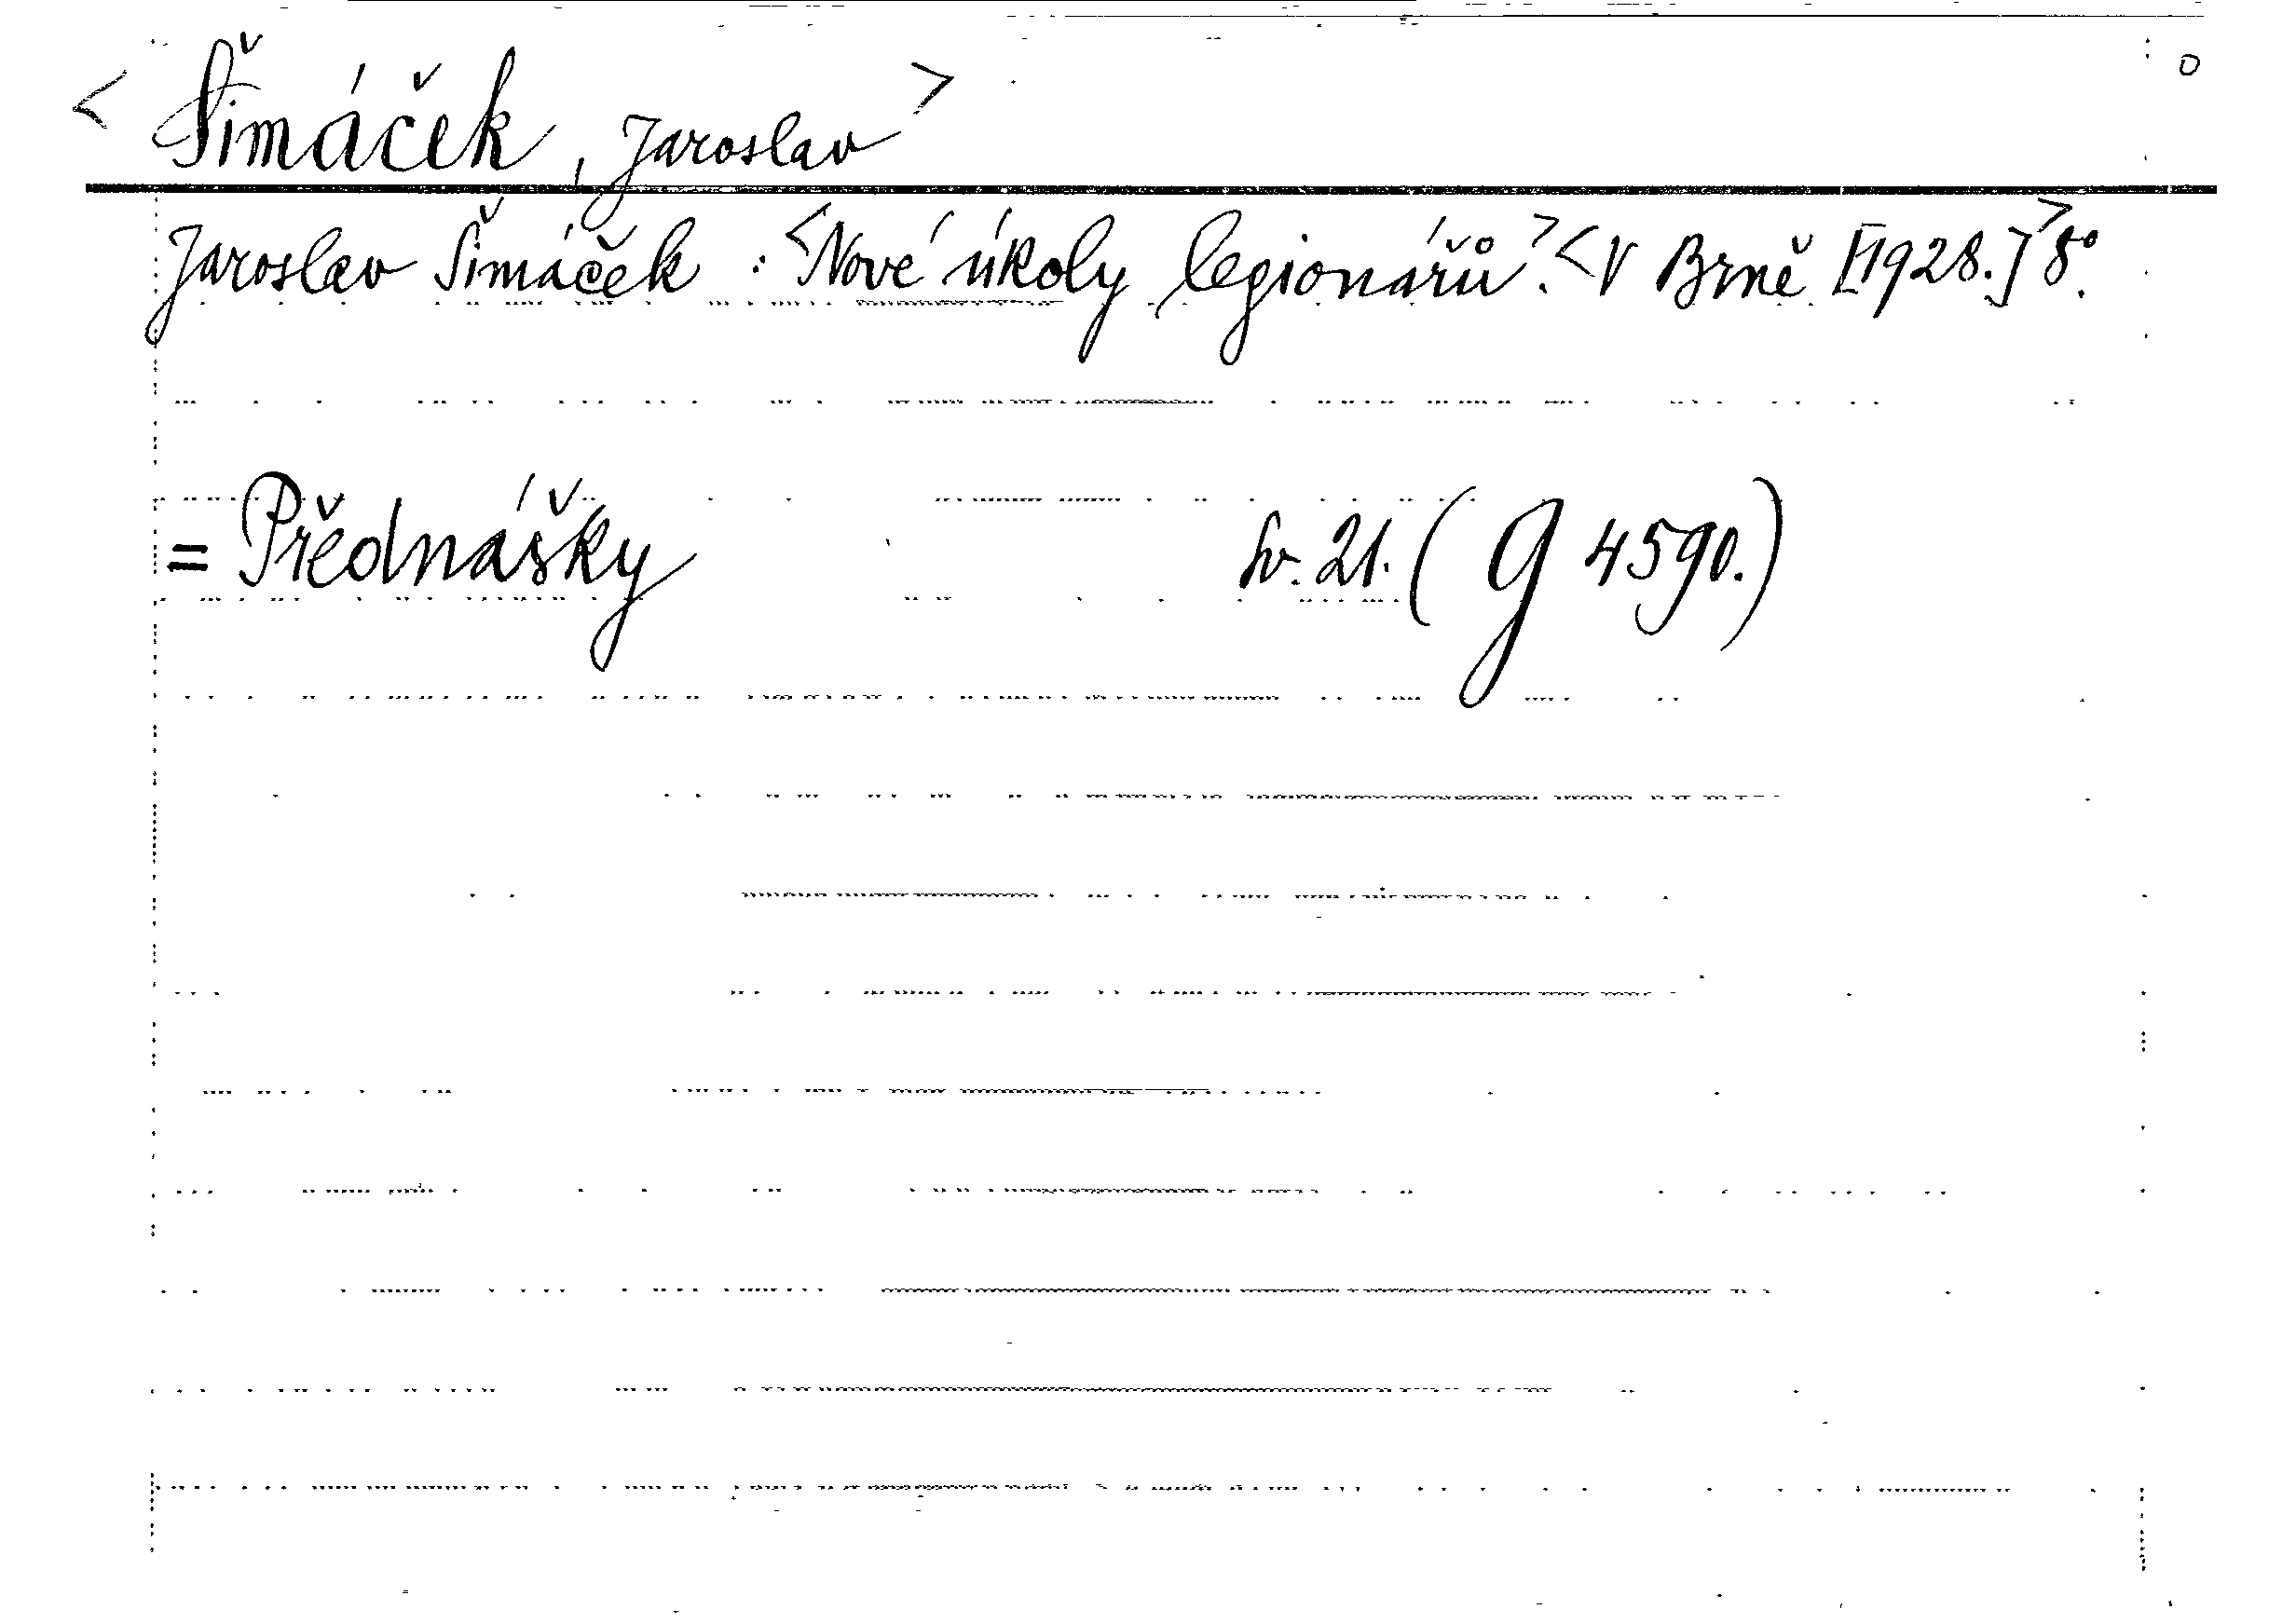 < Šimáček, Jaroslav > o
Jaroslav Šimáček : <Nové úkoly legionářů.> <V Brně [1928.]> 8°.
= Přednášky sv. 21. (G 4590.)